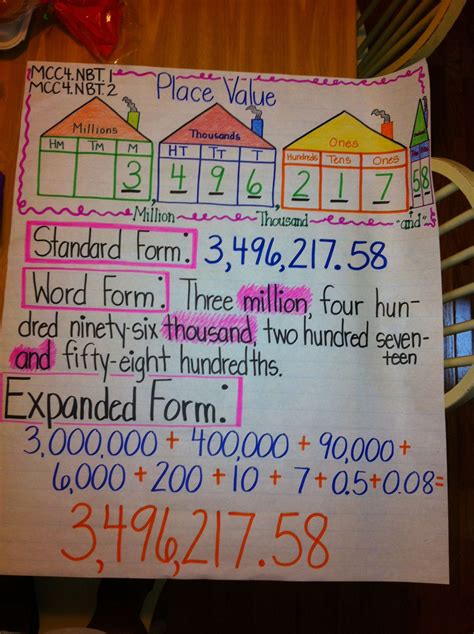 MCC4.NBT.1
MCC4.NBT.2
Place Value
Millions Thousands Ones
HM TM M HT TT T Hundreds Tens Ones
3, 4 9 6, 2 1 7 . 5 8
Million Thousand "and"
Standard Form: 3,496,217.58
Word Form: Three million, four hun-
dred ninety-six thousand, two hundred seven-
teen
and fifty-eight hundredths.
Expanded Form:
3,000,000 + 400,000 + 90,000 +
6,000 + 200 + 10 + 7 + 0.5 + 0.08 =
3,496,217.58